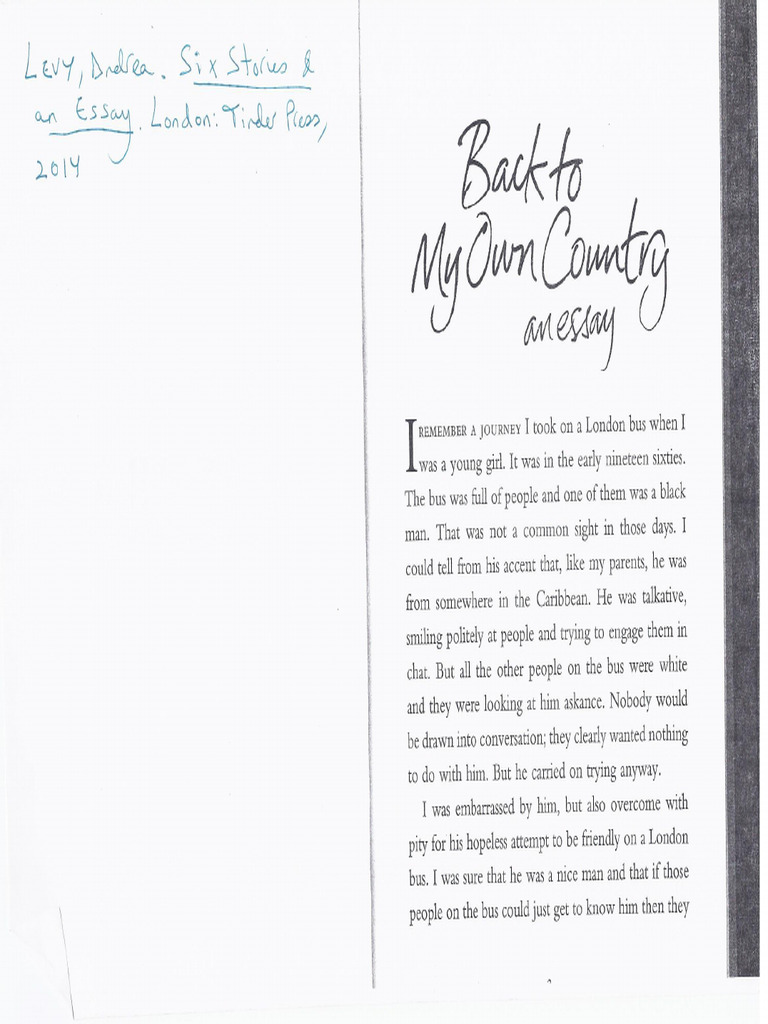 LEVY, Andrea. Six Stories &
an Essay. London: Tinder Press,
2014
Back to
My Own Country
an essay
I REMEMBER A JOURNEY I took on a London bus when I
was a young girl. It was in the early nineteen sixties.
The bus was full of people and one of them was a black
man. That was not a common sight in those days. I
could tell from his accent that, like my parents, he was
from somewhere in the Caribbean. He was talkative,
smiling politely at people and trying to engage them in
chat. But all the other people on the bus were white
and they were looking at him askance. Nobody would
be drawn into conversation; they clearly wanted nothing
to do with him. But he carried on trying anyway.
I was embarrassed by him, but also overcome with
pity for his hopeless attempt to be friendly on a London
bus. I was sure that he was a nice man and that if those
people on the bus could just get to know him then they